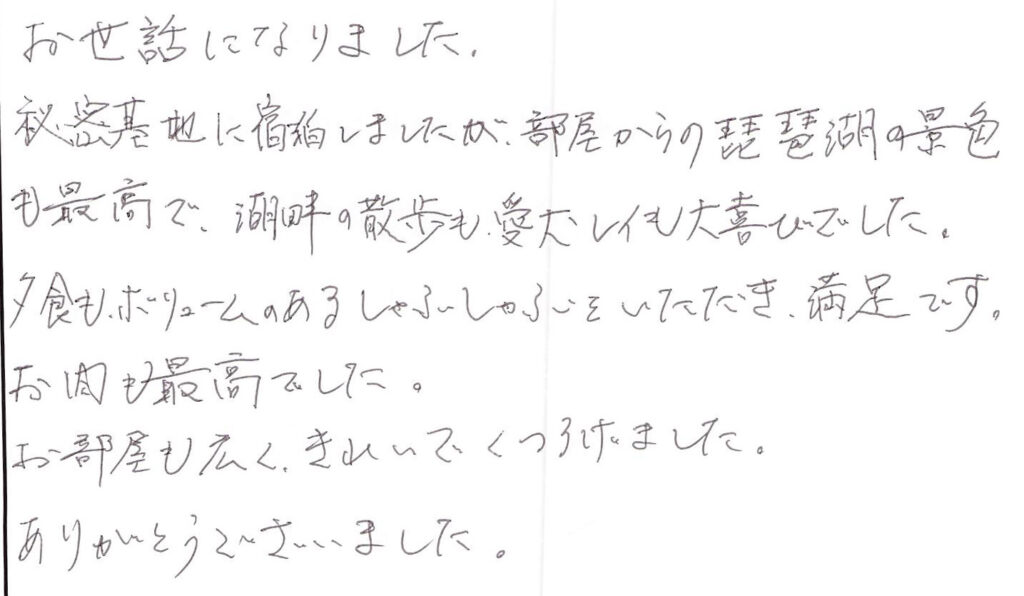 お世話になりました.
秘密基地に宿泊しましたが、部屋からの琵琶湖の景色
も最高で、湖畔の散歩も、愛犬レイも大喜びでした。
夕食も、ボリュームのあるしゃぶしゃぶをいただき、満足です。
お肉も最高でした。
お部屋も広く、きれいでくつろげました。
ありがとうございました。